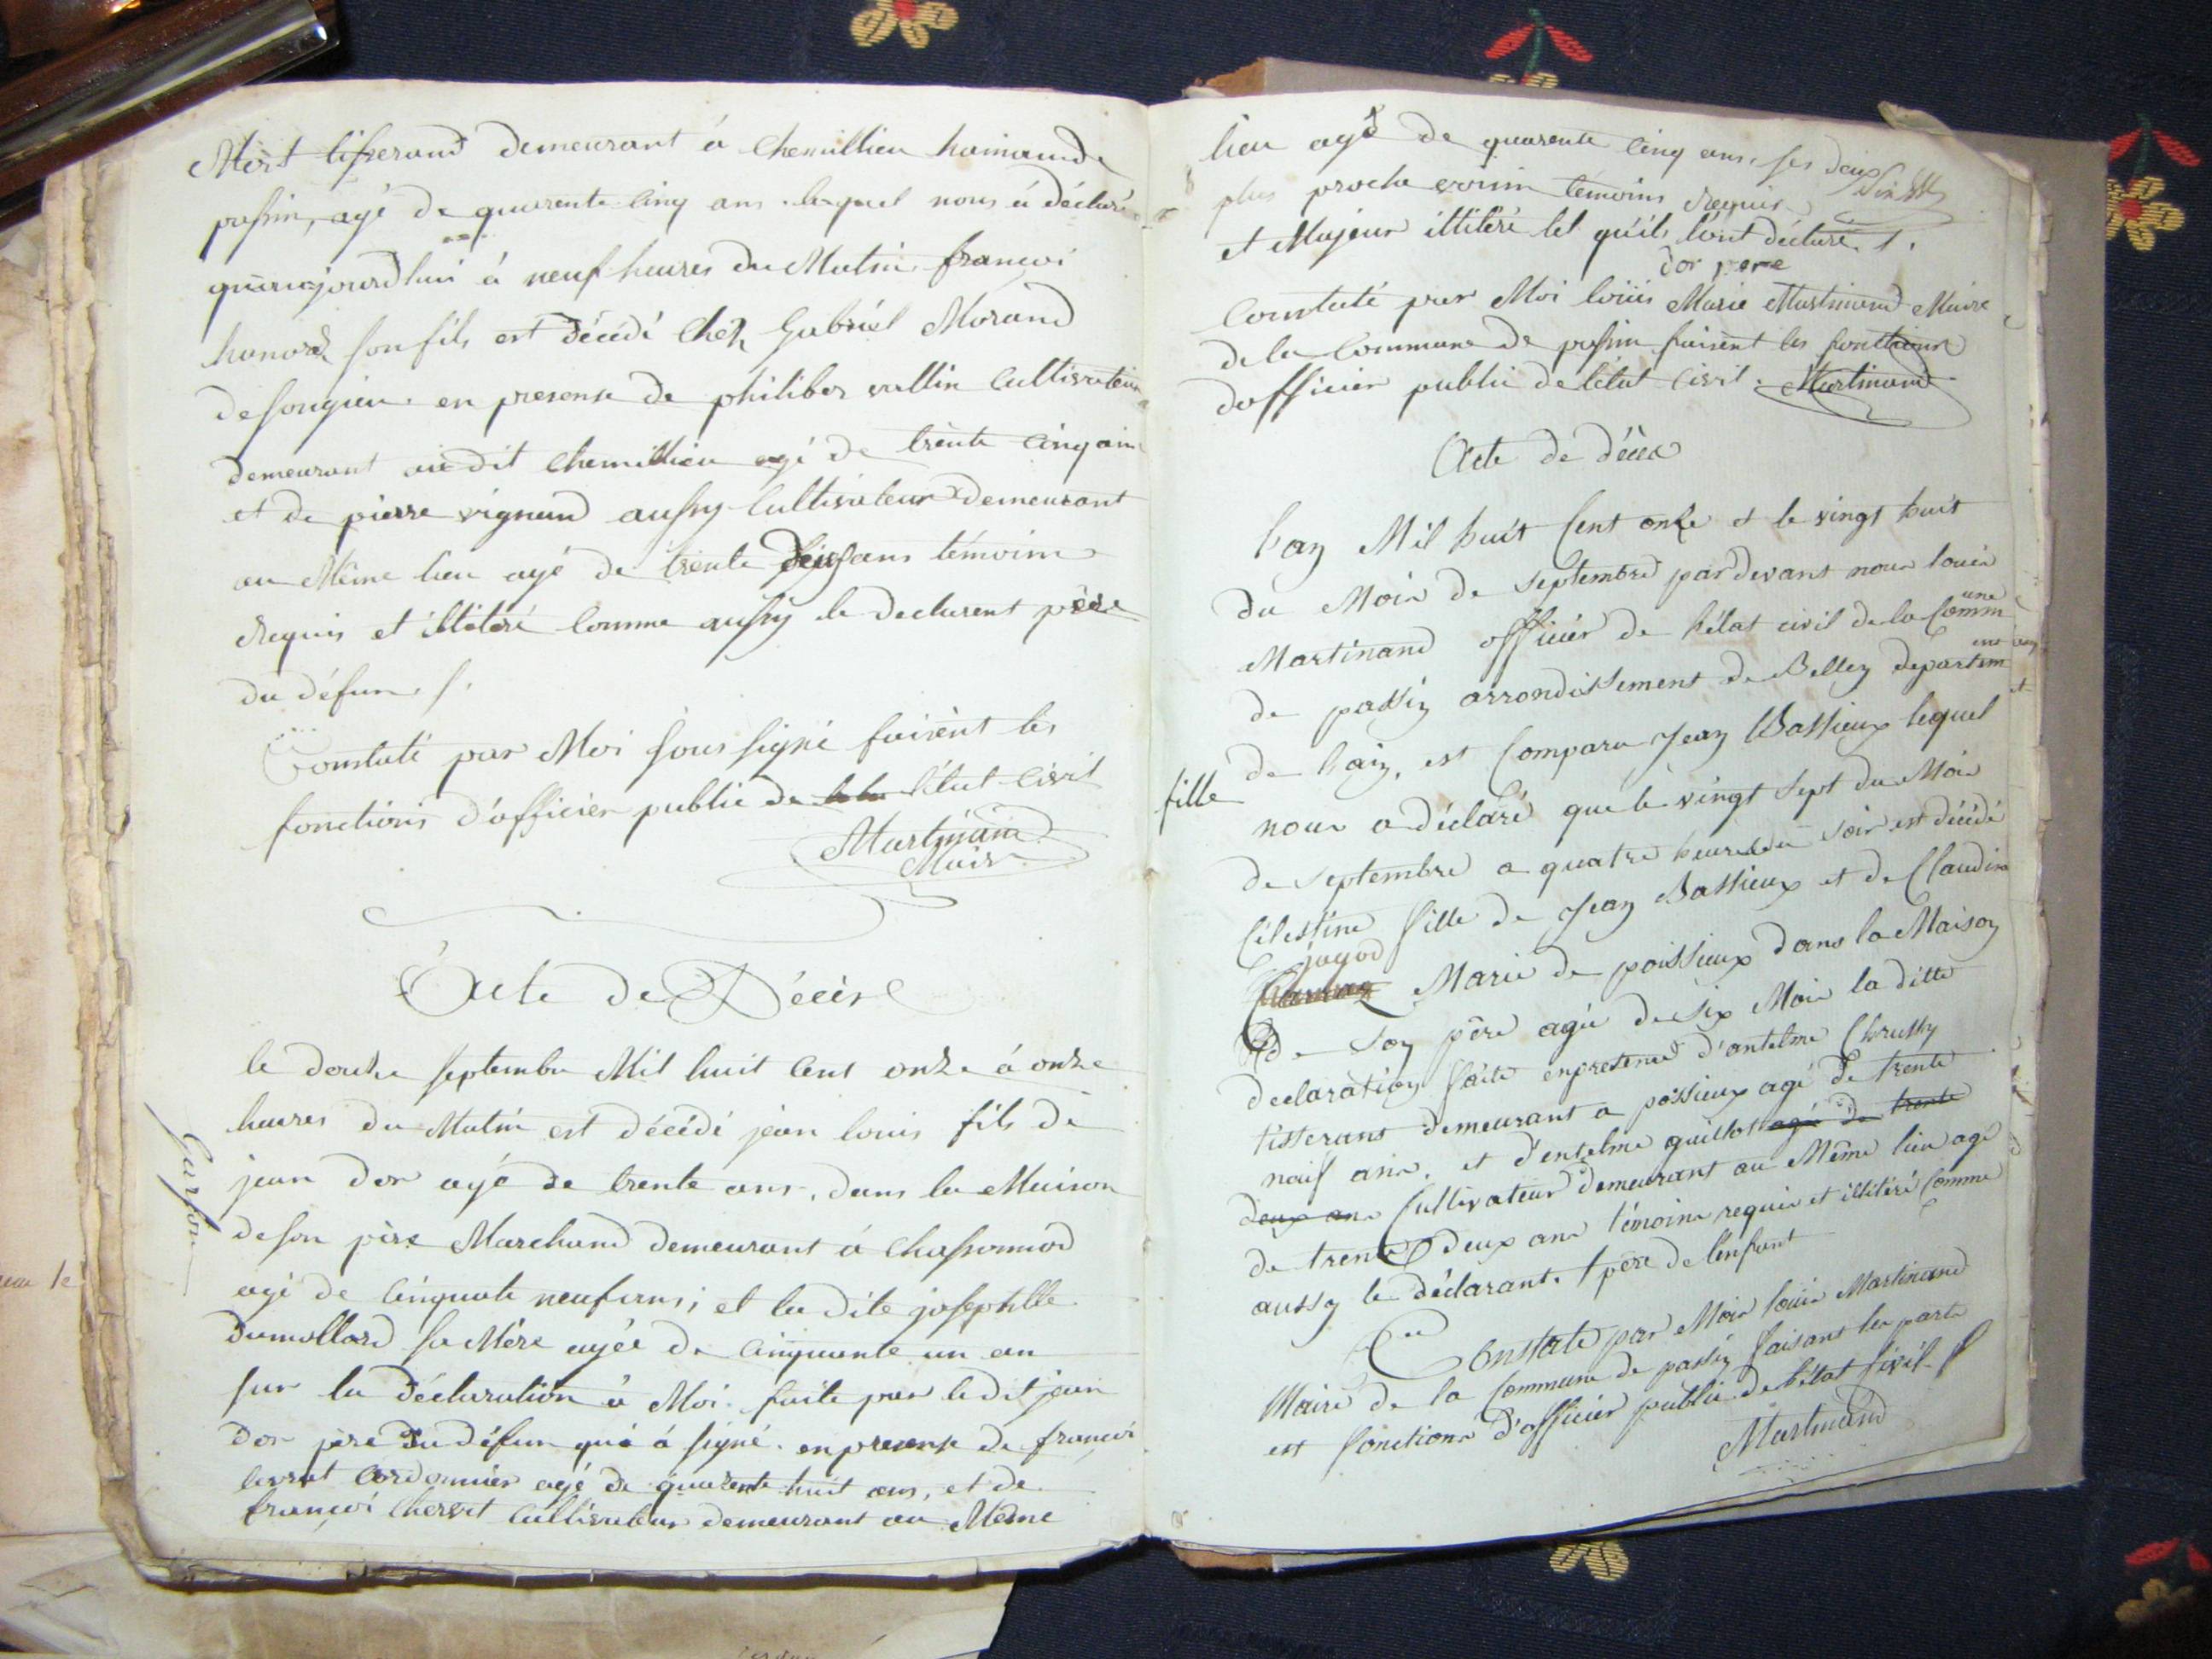 Mort tisserand demeurant á Chemillieu
passin, agé de quarente cinq ans. lequel nous á déclaré
qu'aujourdhui á neuf heures du Matin françoi
honoré son fils est décédé chéz Gabriel Morand
de songieu. en presense de philiber vallin Cultivateur
demeurant au dit chemillieu agé de trente cinq ans
et de pierre vignand aussy Cultivateur demeurant
au Même lieu agé de trente deux ans témoins
Requis et illitéré Comme aussy le declarent père
du défun. /.
Constaté par Moi sous signé faisent les
fonctions d'officier public de l'état Civil
Martinand
Maire
Acte de Décése
Garson
le douse septembre Mil huit Cent onze á onze
heures du Matin est décédé jean louis fils de
jean dor agé de trente ans, dans la Maison
de son père Marchand demeurant á Chassonnod
agé de Cinquante neuf ans; et la dite josephtte
Dumollard sa Mére agée de Cinquante un an
sur la déclaration á Moi faite par le dit jean
dor père du défun qui á signé. en presense de françoi
Cordonnier agé de quarente huit ans, et de
françoi Chervet Cultivateur demeurant au Même
lieu agé de quarente Cinq ans, ses deux
plus proche voisin témoins Requis
et Majeur illitéré tel qu'ils l'ont déclaré. /.
dor pere
Constaté par Moi loüis Marie Martinand Maire
de la Commune de passin faisent les fonctions
dofficier public de l'état Civil. Martinand
Acte de décex
Lan Mil huit Cent onze et le vingt huit
du Mois de septembre pardevant nous louis
Martinand officier de l'état civil de la Commune
de passin arrondissement de Belley departement
de Lain, est Comparu Jean Bassieux lequel
fille
nous a déclaré que le vingt sept du Mois
de septembre a quatre heures du soir est décédé
Célestine fille de Jean Bassieux et de Claudine
jagod
Marie de poissieux dans la Maison
de son père agée de six Mois la ditte
declaration faite enpresence d'antelme Chrusty
tisserant demeurant a poissieux agé de trente
nauf ans. et d'entelme guillot agé de trente
deux ans Cultivateur demeurant au Même lieu agé
de trente deux ans témoins requis et illitéré Comme
aussy le déclarant. père de lenfant
Constaté par Mois louis Martinand
Maire de la Commune de passin faisant les parts
est fonctions d'officier public de l'état sivil
Martinand